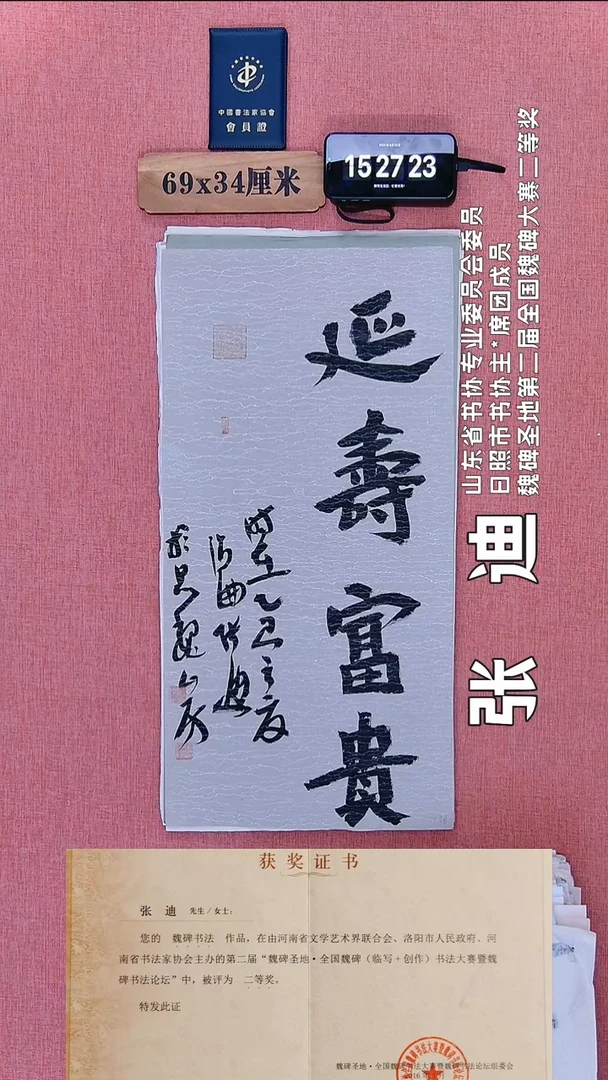 中國書法家協會
會員證
69x34厘米
15 27 23
山东省书协专业委员会委员
日照市书协主*席团成员
魏碑圣地第二届全国魏碑大赛二等奖
张 迪
延壽富貴
时在乙巳之夏
张迪
获奖证书
张 迪 先生/女士:
您的 魏碑书法 作品,在由河南省文学艺术界联合会、洛阳市人民政府、河
南省书法家协会主办的第二届“魏碑圣地·全国魏碑(临写+创作)书法大赛暨魏
碑书法论坛”中,被评为 二等奖。
特发此证
魏碑圣地·全国魏碑书法大赛暨魏碑书法论坛组委会